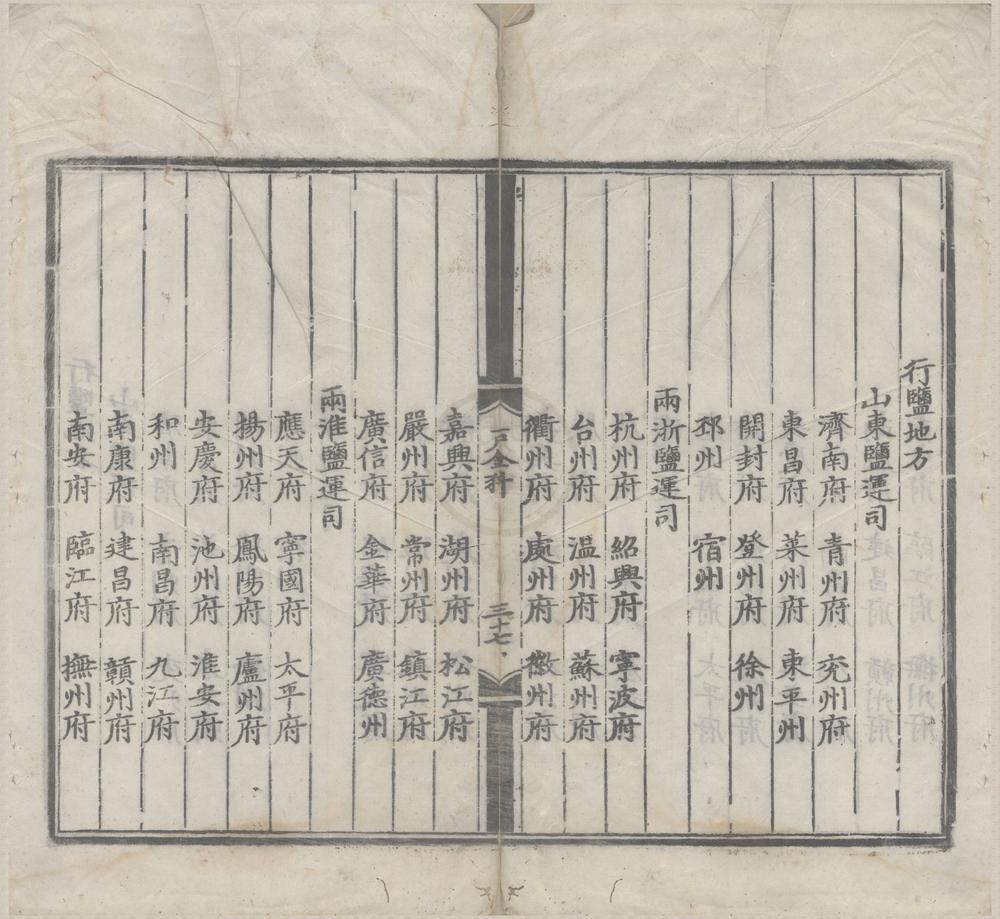 行鹽地方
山東鹽運司
濟南府 青州府 兖州府
東昌府 莱州府 東平州
開封府 登州府 徐州
邳州 宿州
兩浙鹽運司
杭州府 紹興府 寧波府
台州府 温州府 蘇州府
衢州府 處州府 徽州府
户金科 三十七
嘉興府 湖州府 松江府
嚴州府 常州府 鎮江府
廣信府 金華府 廣德州
兩淮鹽運司
應天府 寧國府 太平府
揚州府 鳳陽府 廬州府
安慶府 池州府 淮安府
和州 南昌府 九江府
南康府 建昌府 贛州府
南安府 臨江府 撫州府